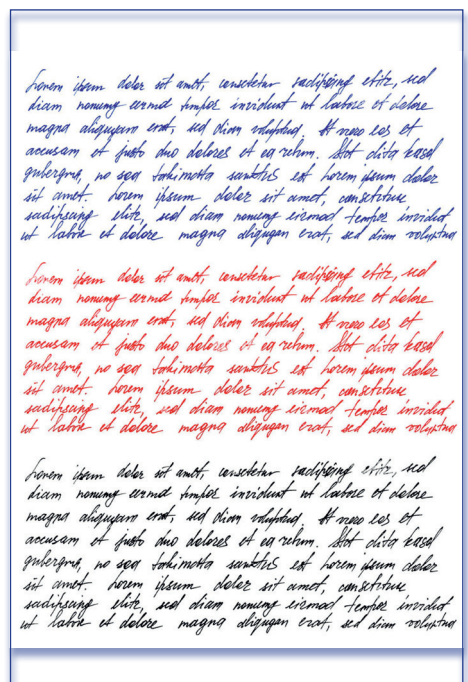 Lorem ipsum dolor sit amet, consetetur sadipscing elitr, sed
diam nonumy eirmod tempor invidunt ut labore et dolore
magna aliquyam erat, sed diam voluptua. At vero eos et
accusam et justo duo dolores et ea rebum. Stet clita kasd
gubergren, no sea takimata sanctus est Lorem ipsum dolor
sit amet. Lorem ipsum dolor sit amet, consetetur
sadipscing elitr, sed diam nonumy eirmod tempor invidut
ut labore et dolore magna aliquyam erat, sed diam voluptua
Lorem ipsum dolor sit amet, consetetur sadipscing elitr, sed
diam nonumy eirmod tempor invidunt ut labore et dolore
magna aliquyam erat, sed diam voluptua. At vero eos et
accusam et justo duo dolores et ea rebum. Stet clita kasd
gubergren, no sea takimata sanctus est Lorem ipsum dolor
sit amet. Lorem ipsum dolor sit amet, consetetur
sadipscing elitr, sed diam nonumy eirmod tempor invidut
ut labore et dolore magna aliquyam erat, sed diam voluptua
Lorem ipsum dolor sit amet, consetetur sadipscing elitr, sed
diam nonumy eirmod tempor invidunt ut labore et dolore
magna aliquyam erat, sed diam voluptua. At vero eos et
accusam et justo duo dolores et ea rebum. Stet clita kasd
gubergren, no sea takimata sanctus est Lorem ipsum dolor
sit amet. Lorem ipsum dolor sit amet, consetetur
sadipscing elitr, sed diam nonumy eirmod tempor invidut
ut labore et dolore magna aliquyam erat, sed diam voluptua